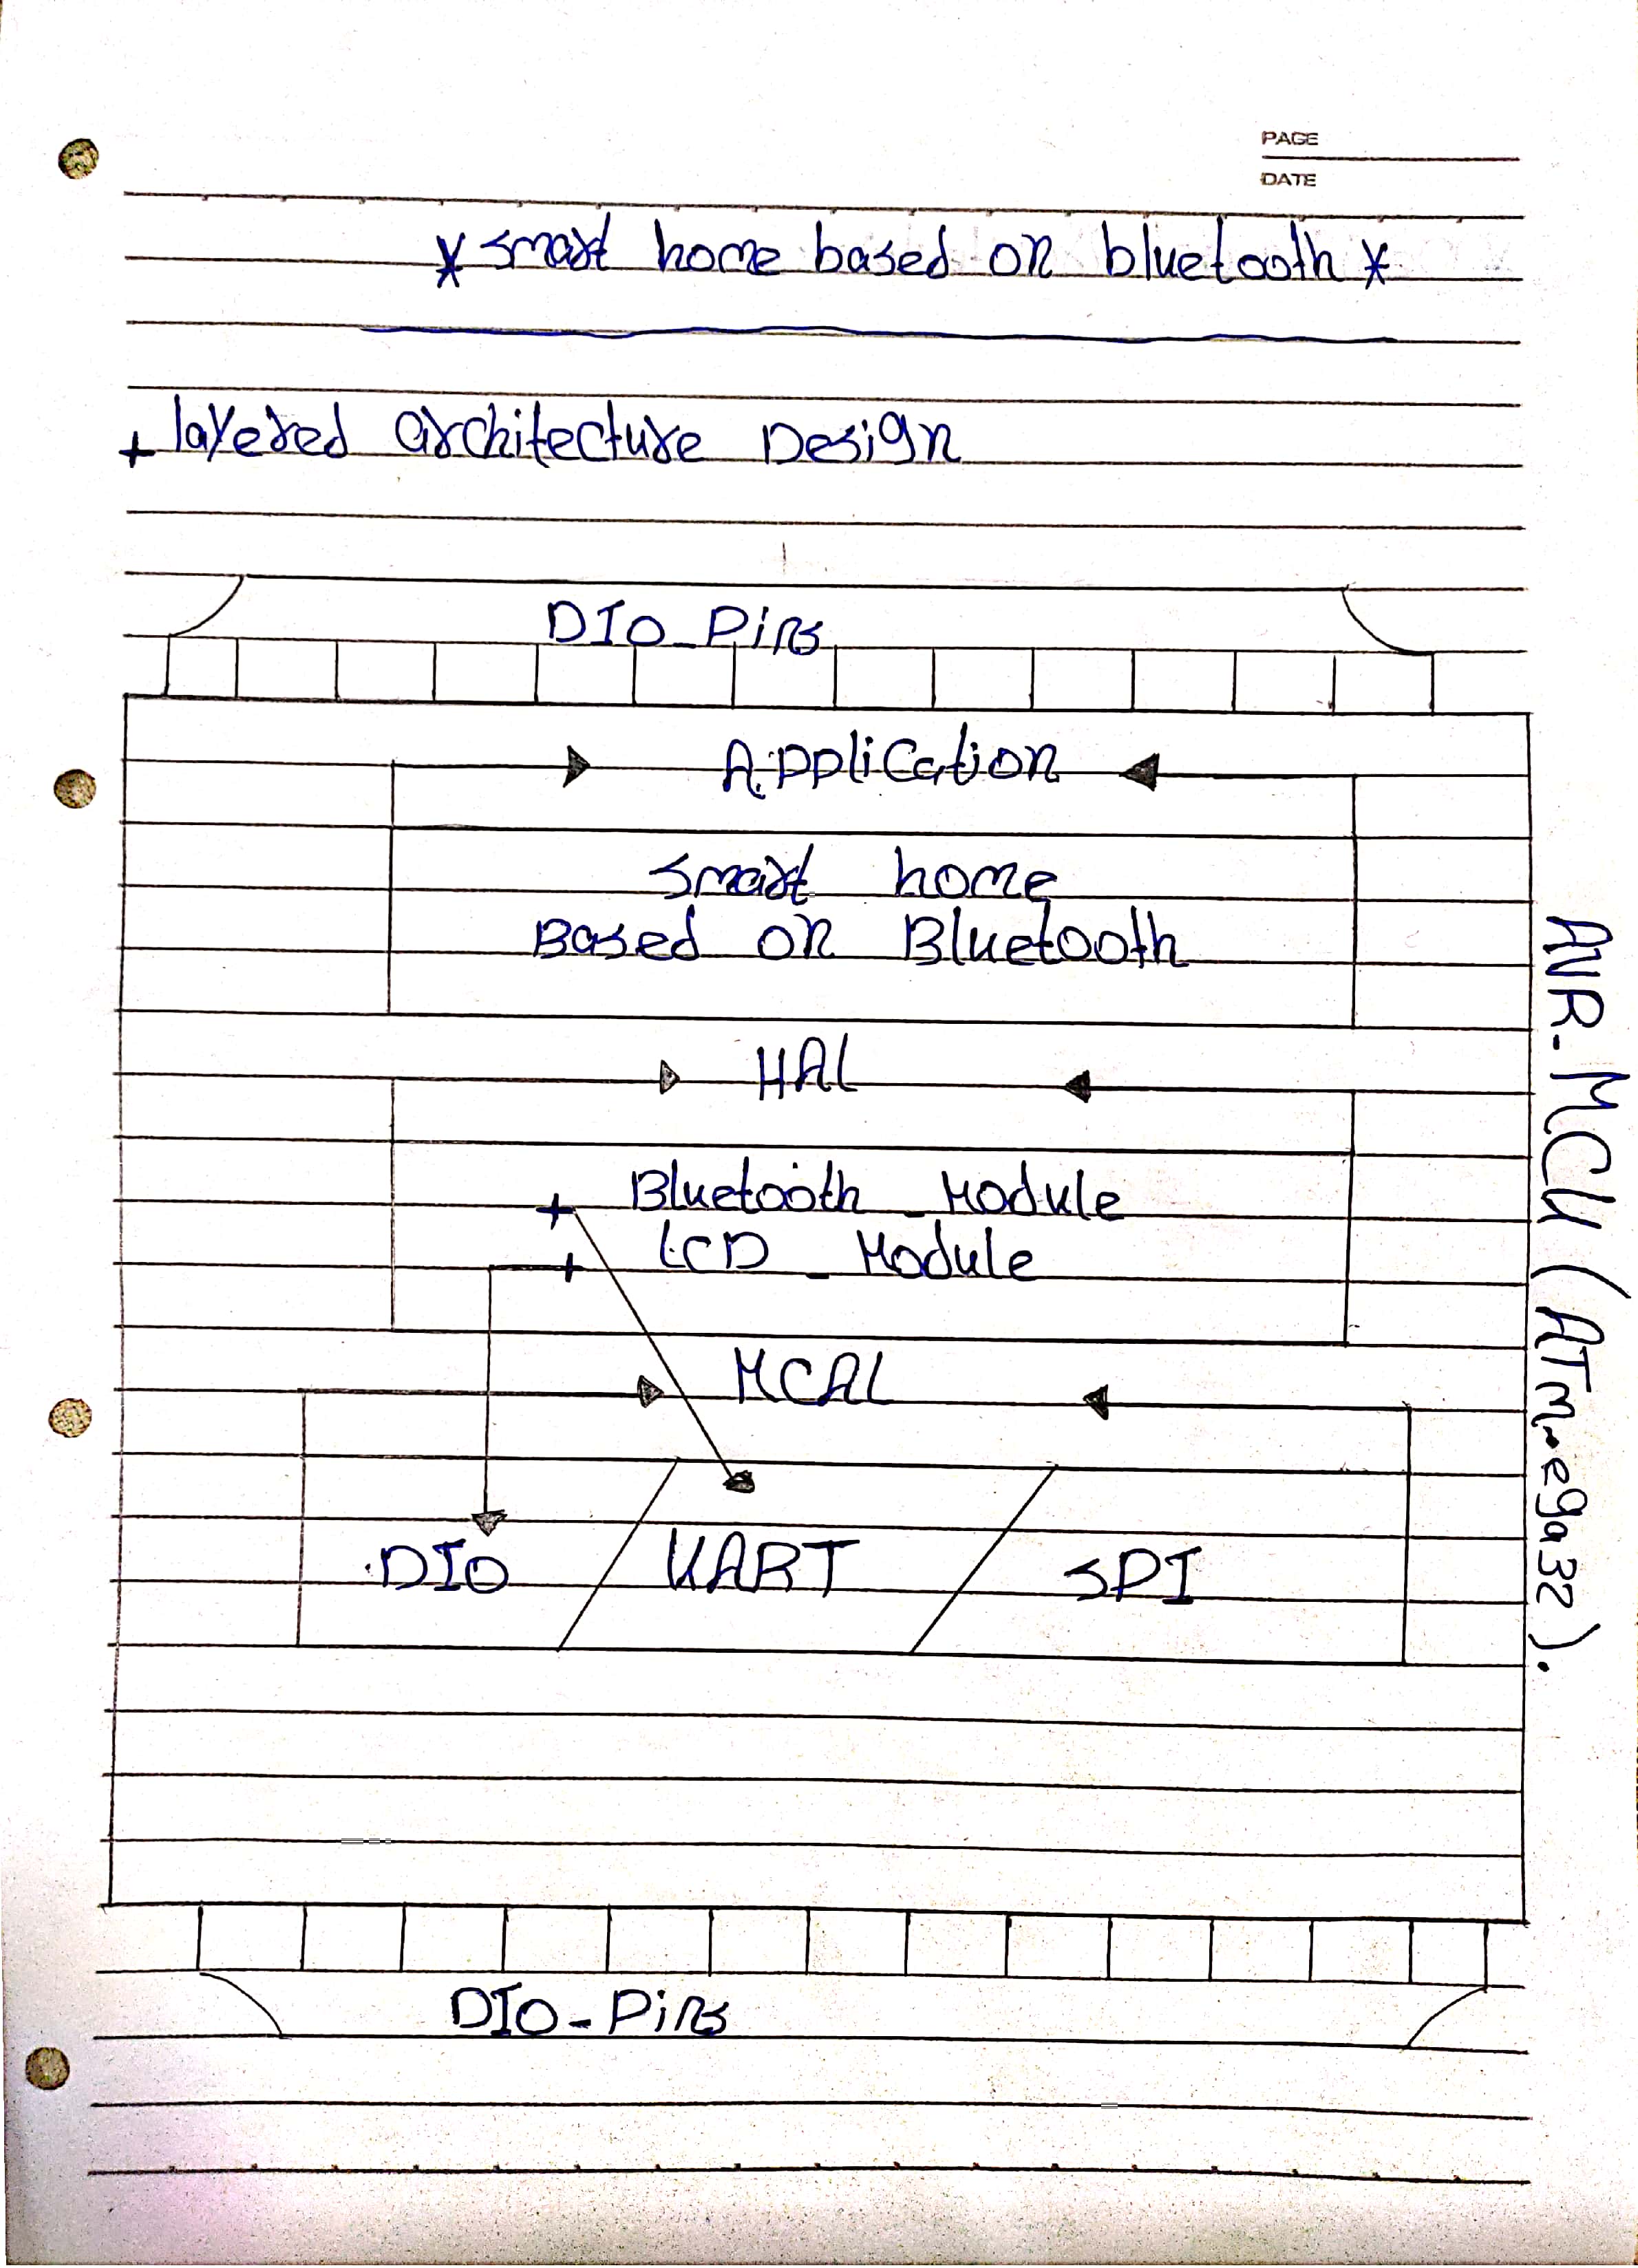 PAGE
DATE
* smart home based on bluetooth *
+ layered architecture Design
DIO_Pins
Application
smart home
Based on Bluetooth
HAL
+ Bluetooth_Module
+ LCD_Module
MCAL
DIO
UART
SPI
AVR-MCU (ATmega32).
DIO-Pins